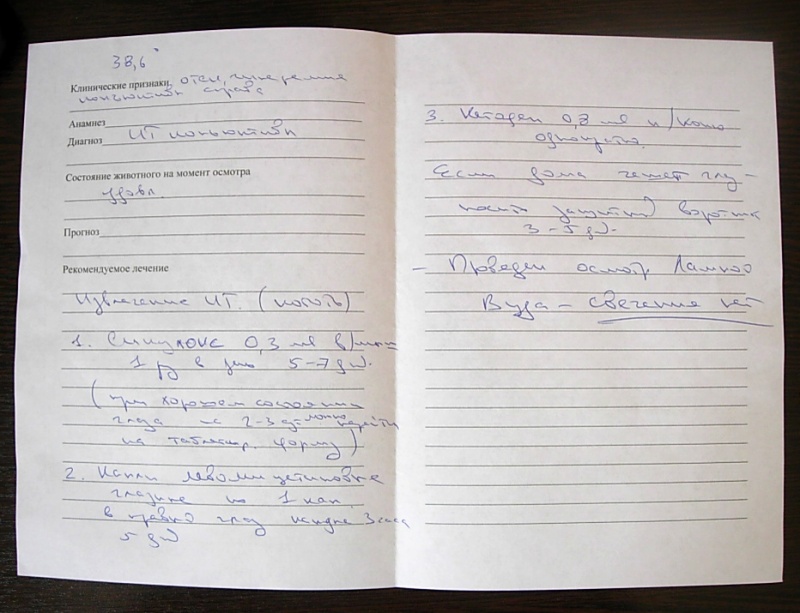 38,6°
Клинические признаки отек, гиперемия
конъюктивы справа
Анамнез
Диагноз ИТ конъюктивы
Состояние животного на момент осмотра
удовл.
Прогноз
Рекомендуемое лечение
Извлечение ИТ. (коготь)
1. Синулокс 0,3 мл в/мыш
1 р в день 5-7 дн.
(при хорошем состоянии
глаза на 2-3 д. можно перейти
на таблетир. форму)
2. Капли левомицетиновые
глазные по 1 кап.
в правый глаз каждые 3 часа
5 дн
3. Кетоджен 0,3 мл п/кожно
однократно.
Если дома чешет глаз -
носить защитный воротник
3-5 дн.
- Проведен осмотр Лампой
Вуда - свечения нет